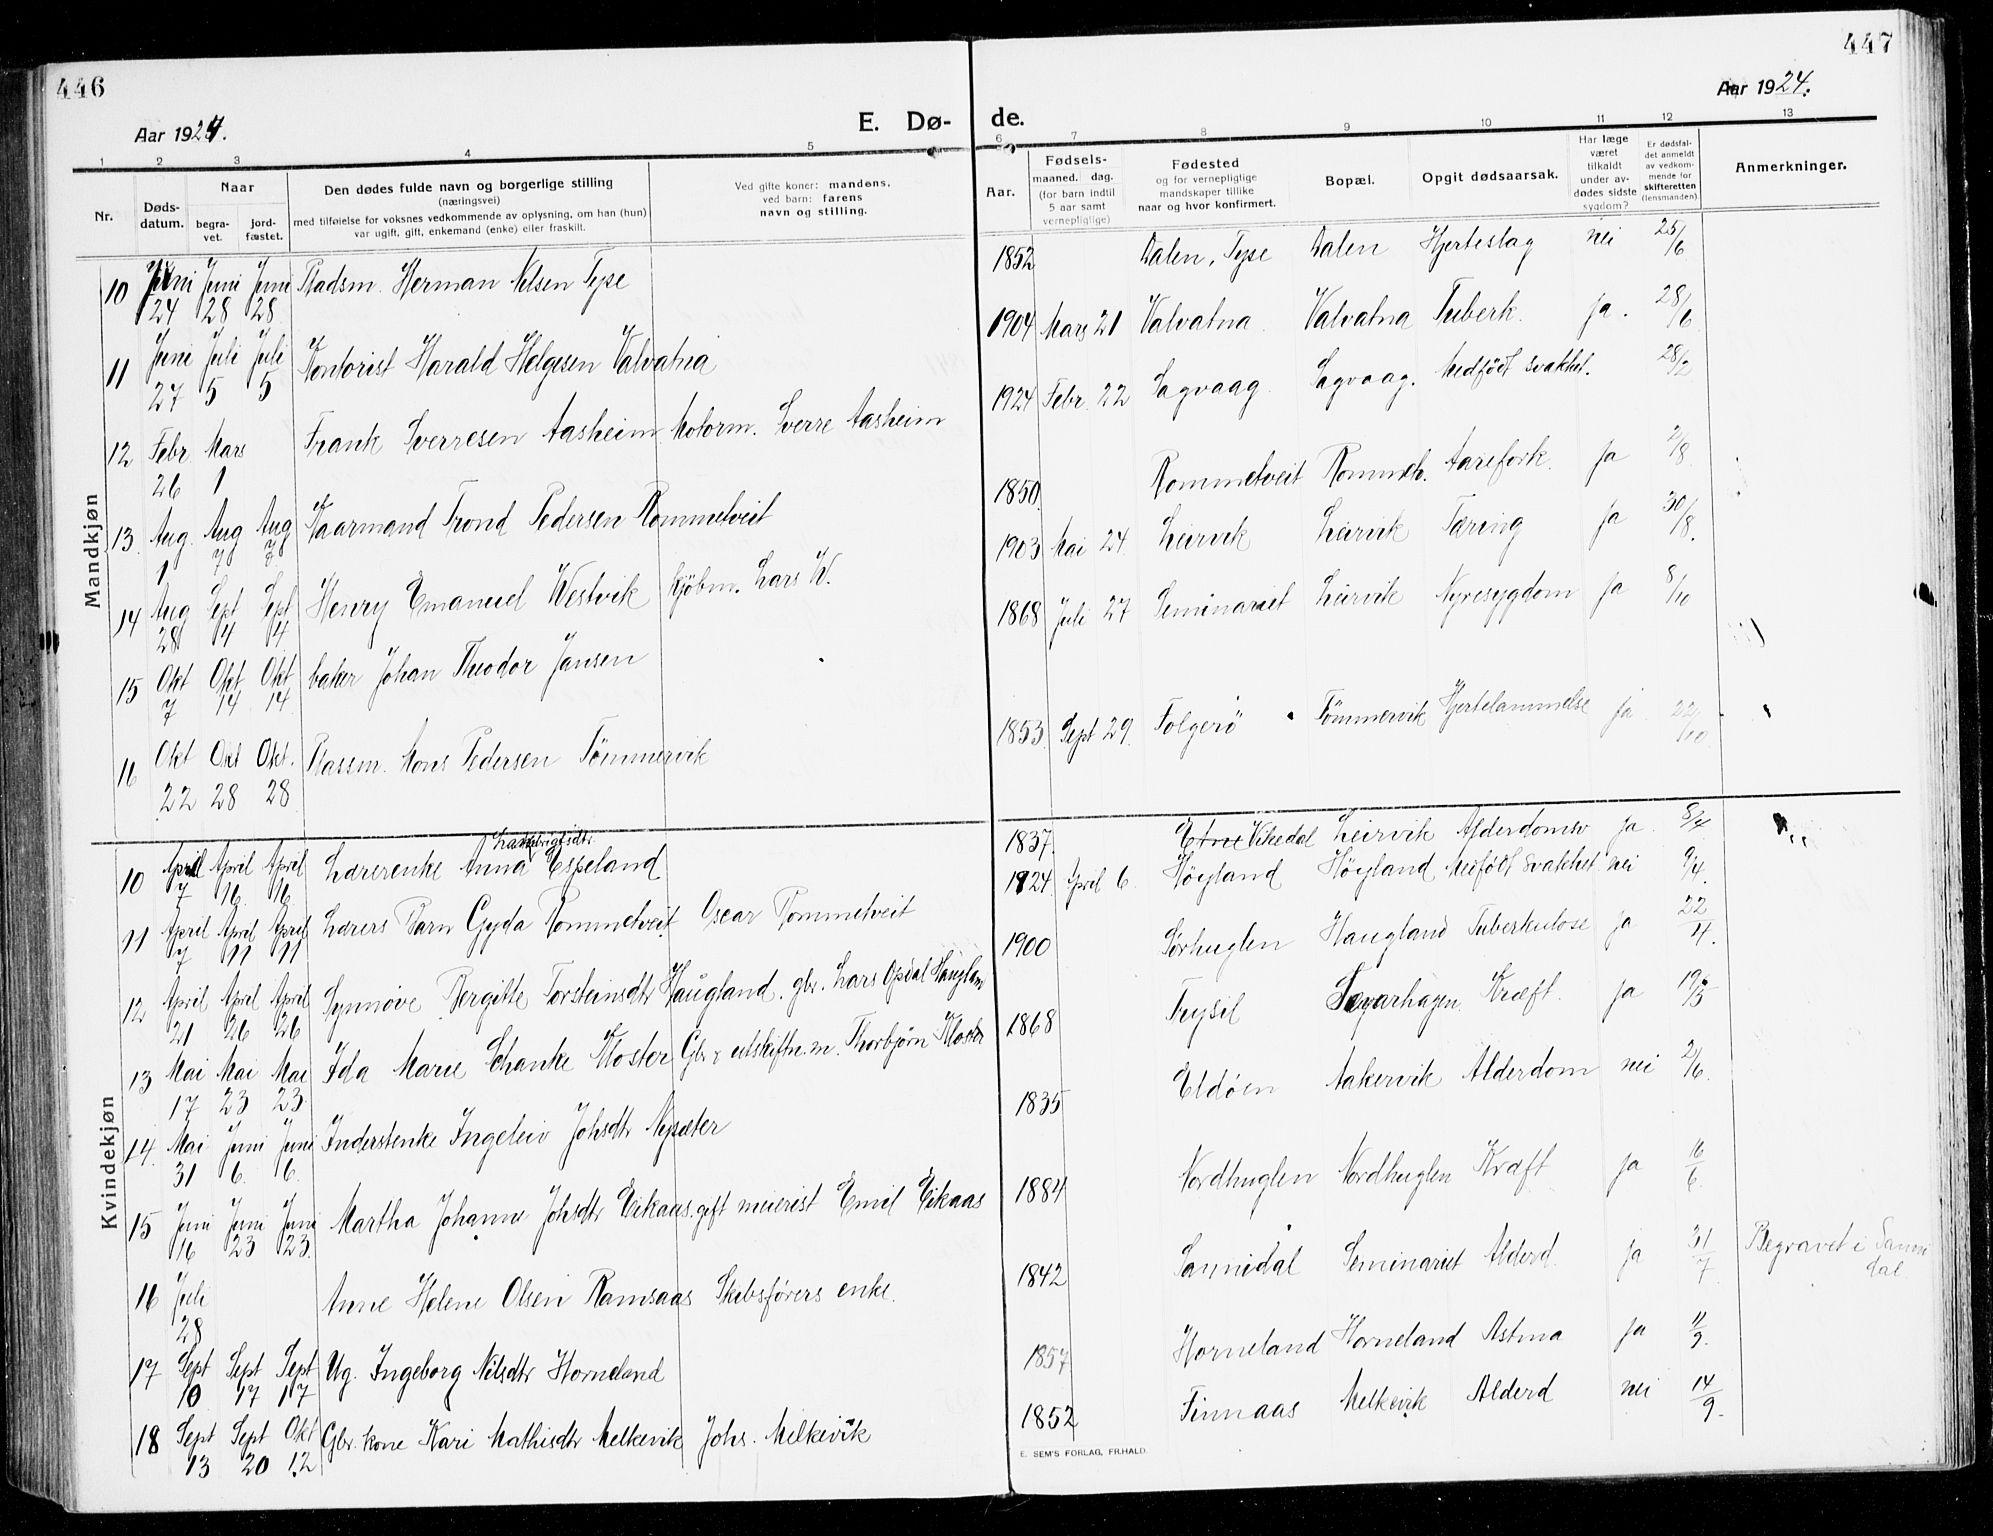 446
447
Aar 1924.
E. Dø-
de.
Aar 1924.
1 2 3 4 5 6 7 8 9 10 11 12 13
Nr.
Døds-
datum.
Naar
begra-
vet.
jord-
fæstet.
Den dødes fulde navn og borgerlige stilling
(næringsvei)
med tilføielse for voksnes vedkommende av oplysning, om han (hun)
var ugift, gift, enkemand (enke) eller fraskilt.
Ved gifte koner: mandens,
ved barn: farens
navn og stilling.
Aar.
Fødsels-
maaned. dag.
(for barn indtil
5 aar samt
vernepligtige)
Fødested
og for vernepligtige
mandskaper tillike
naar og hvor konfirmert.
Bopæl.
Opgit dødsaarsak.
Har læge
været
tilkaldt
under av-
dødes sidste
sygdom?
Er dødsfal-
det anmeldt
av vedkom-
mende for
skifteretten
(lensmanden).
Anmerkninger.
Mandkjøn
10 Juni 24 Juni 28 Juni 28 Pladsm. Herman Nilsen Tyse 1852 Dalen, Tyse Dalen Hjerteslag nei 25/6
11 Juni 27 Juli 5 Juli 5 Kontorist Harald Helgesen Valvatna 1904 Mars 21 Valvatna Valvatna Tuberk. ja. 28/6
12 Febr 26 Mars 1 Frank Sverresen Aasheim Motorm. Sverre Aasheim 1924 Febr. 22 Sagvaag Sagvaag. Medfødt svakhet. 28/2
13 Aug. 1 Aug 7 Aug 7 Kaarmand Trond Pedersen Rommetveit 1850 Rommetveit Rommetv. Aarefork. ja 2/8
14 Aug 28 Sept 4 Sept 4 Henry Emanuel Westvik Kjøbm. Lars W. 1903 Mai 24. Leirvik Leirvik Tæring ja 30/8.
15 Okt 7 Okt 14 Okt 14 baker Johan Theodor Jansen 1868 Juli 27 Seminariet Leirvik Nyresygdom ja 8/10
16 Okt 22 Okt 28 Okt. 28 Plassm. Mons Pedersen Tømmervik 1853 Sept 29. Folgerø Tømmervik Hjertelammelse ja 22/10
Kvindekjøn
10 April 7 April 16 April 16 Lærerenke Anna Espeland 1837. Etne Vikedal Leirvik Alderdomsv ja 8/4
11 April 7 April 11 April 11 Lærers Barn Gyda Rommetveit Oscar Rommetveit 1924 April 6. Høyland Høyland Medfødt svakhet nei 9/4.
12 April 21 April 26 April 26 Synnøve Bergitte Torsteinsdtr Haugland. gbr. Lars Opdal Haugland 1900 Sørhuglen Haugland Tuberkulose ja 22/4.
13 Mai 17 Mai 23 Mai 23 Ida Marie Schanke Kloster Gbr & utskiftn.m. Thorbjørn Kloster 1868 Trysil Kræft. ja 19/5
14. Mai 31 Juni 6. Juni 6. Inderstenke Ingeleiv Johsdtr Nysæter 1835 Eldøen Aakervik Alderdom nei 2/6.
15 Juni 16 Juni 23 Juni 23. Martha Johanne Johsdtr Eikaas. gift meierist Emil Eikaas 1884 Nordhuglen Nordhuglen Kræft ja 16/6.
16 Juli 28 Anne Helene Olsen Ramsaas Skibsførers enke. 1842 Sannidal Seminariet Alderd. ja 31/7. Begravet i Sanni
dal
17 Sept 10 Sept 17 Sept 17 Ug. Ingeborg Nilsdtr Horneland 1857 Horneland Horneland Astma ja 11/9.
18 Sept 13 Sept 20 Okt 12 Gbr. kone Kari Mathisdtr Melkevik Johs. Melkevik 1852 Finnaas Melkevik Alderd nei 14/9.
E. SEM'S FORLAG, FR.HALD.